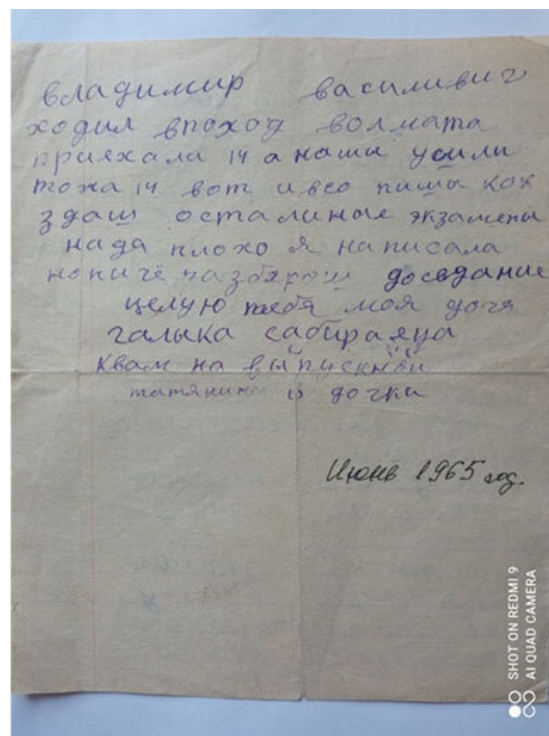 владимир василивич
ходил впоход волмата
приехала 14 а наши ушли
тожа 14 вот ивсо пишы как
здаш осталиные экзамены
нада плохо я написала
ничё разбярош досвдание
целую тебя моя доча
галыка сабираяца
квам на выпускной
дочки
Июнь 1965 год.
SHOT ON REDMI 9
AI QUAD CAMERA